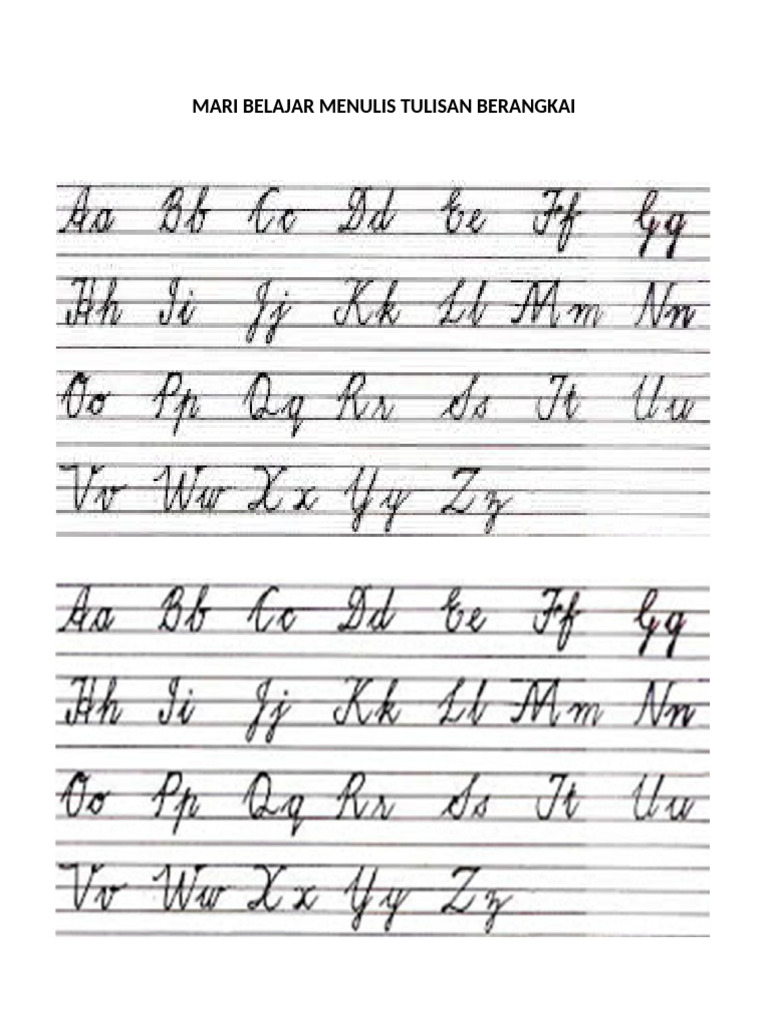 MARI BELAJAR MENULIS TULISAN BERANGKAI
Aa Bb Cc Dd Ee Ff Gg
Hh Ii Jj Kk Ll Mm Nn
Oo Pp Qq Rr Ss Tt Uu
Vv Ww Xx Yy Zz
Aa Bb Cc Dd Ee Ff Gg
Hh Ii Jj Kk Ll Mm Nn
Oo Pp Qq Rr Ss Tt Uu
Vv Ww Xx Yy Zz